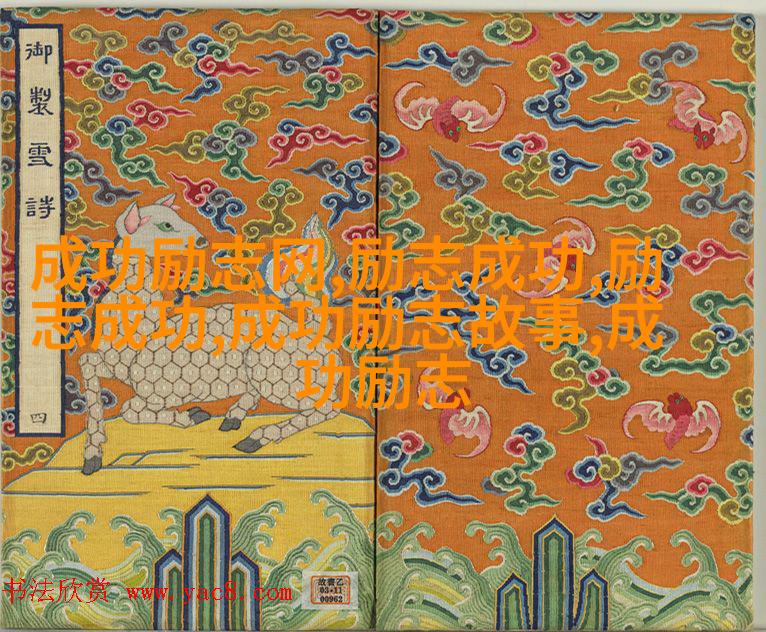 御製雪詩
四
成功励志网,励志成功,励
志成功,成功励志故事,成
功励志
故書乙
03•11
00962
书法欣赏 www.yac8.com